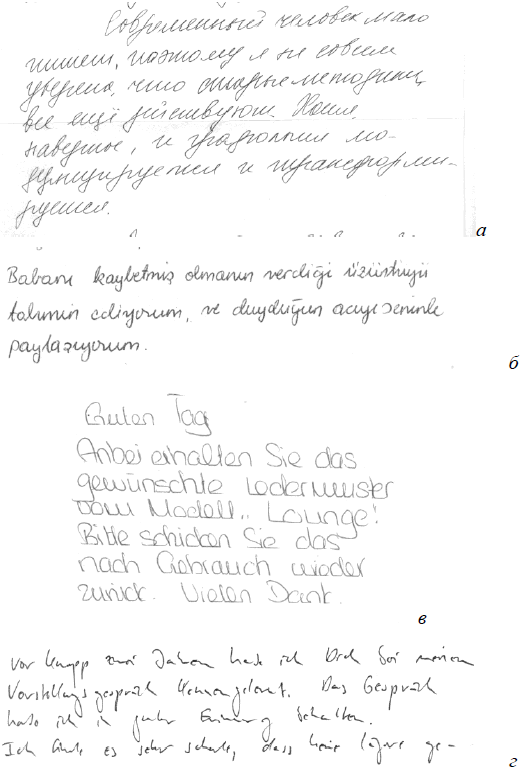 Современный человек мало
пишет, поэтому я не совсем
уверена, что старые методики
все ещё действуют. Хотя,
наверное, и графология мо-
дулируется и трансформи-
руется.
а
Babanı kaybetmiş olmanın verdiği üzüntüyü
tahmin ediyorum, ve duyduğun acıyı seninle
paylaşıyorum.
б
Guten Tag
Anbei erhalten Sie das
gewünschte Ledermuster
vom Modell „Lounge“!
Bitte schicken Sie das
nach Gebrauch wieder
zurück. Vielen Dank.
в
Vor knapp zwei Jahren habe ich Dich bei meinem
Vorstellungsgespräch kennengelernt. Das Gespräch
habe ich in guter Erinnerung behalten.
Ich finde es sehr schade, dass keine ge-
г